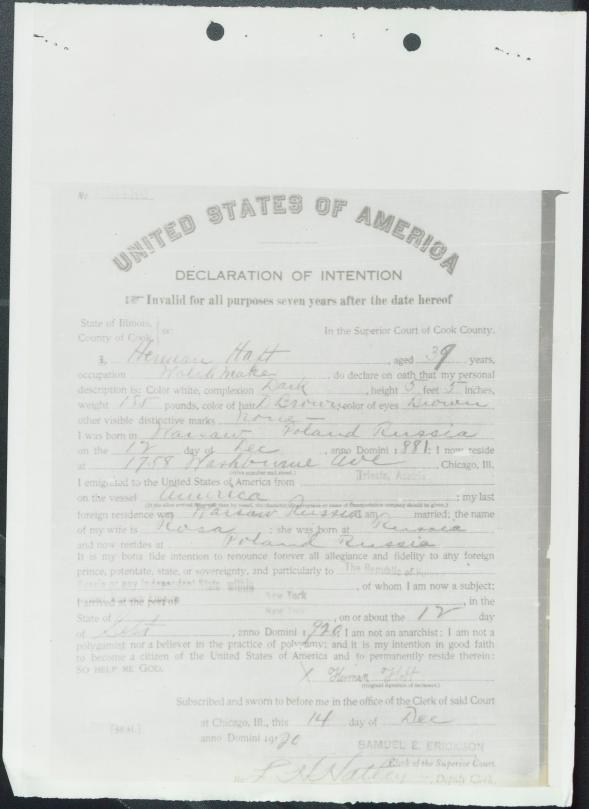 No
UNITED STATES OF AMERICA
DECLARATION OF INTENTION
☞ Invalid for all purposes seven years after the date hereof
State of Illinois,
County of Cook, ss:
In the Superior Court of Cook County.
I, Herman Hatt, aged 39 years,
occupation Watchmaker, do declare on oath that my personal
description is: Color white, complexion Dark, height 5 feet 5 inches,
weight 155 pounds, color of hair D Brown color of eyes Brown
other visible distinctive marks none
I was born in Warsaw Poland Russia
on the 12 day of Dec, anno Domini 1881; I now reside
at 1758 Washburne Ave, Chicago, Ill.
(Give number and street.)
I emigrated to the United States of America from Trieste, Austria
on the vessel America; my last
foreign residence was Warsaw Russia I am married; the name
of my wife is Rosa; she was born at Russia
and now resides at Poland Russia
It is my bona fide intention to renounce forever all allegiance and fidelity to any foreign
prince, potentate, state, or sovereignty, and particularly to The Republic of
Russia or any Independent State within, of whom I am now a subject;
I arrived at the port of New York, in the
State of New York, on or about the 12 day
of, anno Domini 1920; I am not an anarchist; I am not a
polygamist nor a believer in the practice of polygamy; and it is my intention in good faith
to become a citizen of the United States of America and to permanently reside therein:
SO HELP ME GOD.
X Herman Hott
(Original signature of declarant.)
Subscribed and sworn to before me in the office of the Clerk of said Court
[SEAL] at Chicago, Ill., this 14 day of Dec
anno Domini 1920
SAMUEL E. ERICKSON
Clerk of the Superior Court.
By, Deputy Clerk.